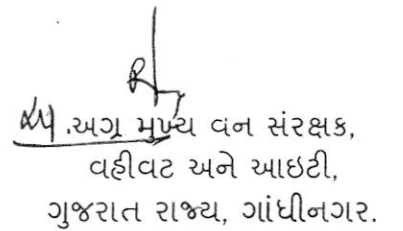 .અગ્ર મુખ્ય વન સંરક્ષક,
વહીવટ અને આઇટી,
ગુજરાત રાજ્ય, ગાંધીનગર.